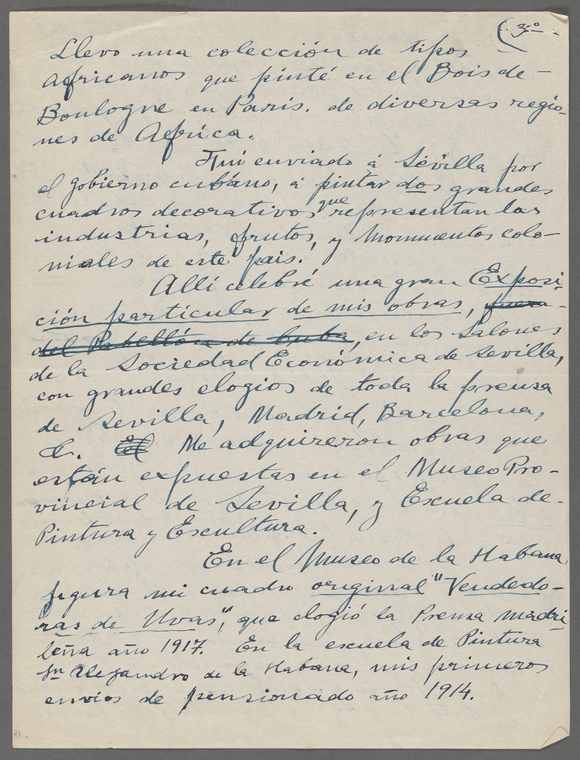 3º
Llevo una colección de tipos
Africanos que pinté en el Bois de-
Boulogne en Paris. de diversas regio-
nes de Africa.
Fui enviado á Sevilla por
el gobierno cubano, á pintar dos grandes
cuadros decorativos que representan las
industrias, frutos, y Monumentos colo-
niales de este pais.
Allí celebré una gran Exposi-
ción particular de mis obras, fuera
del Pabellón de Cuba, en los Salones
de la Sociedad Económica de Sevilla,
con grandes elogios de toda la prensa
de Sevilla, Madrid, Barcelona,
&. Me adquireron obras que
están expuestas en el Museo Pro-
vincial de Sevilla, y Escuela de-
Pintura y Escultura.
En el Museo de la Habana
figura mi cuadro original "Vendedo-
ras de Uvas", que elogió la Prensa Madri
leña año 1917. En la escuela de Pintura
Sn Alejandro de la Habana, mis primeros
envios de pensionado año 1914.